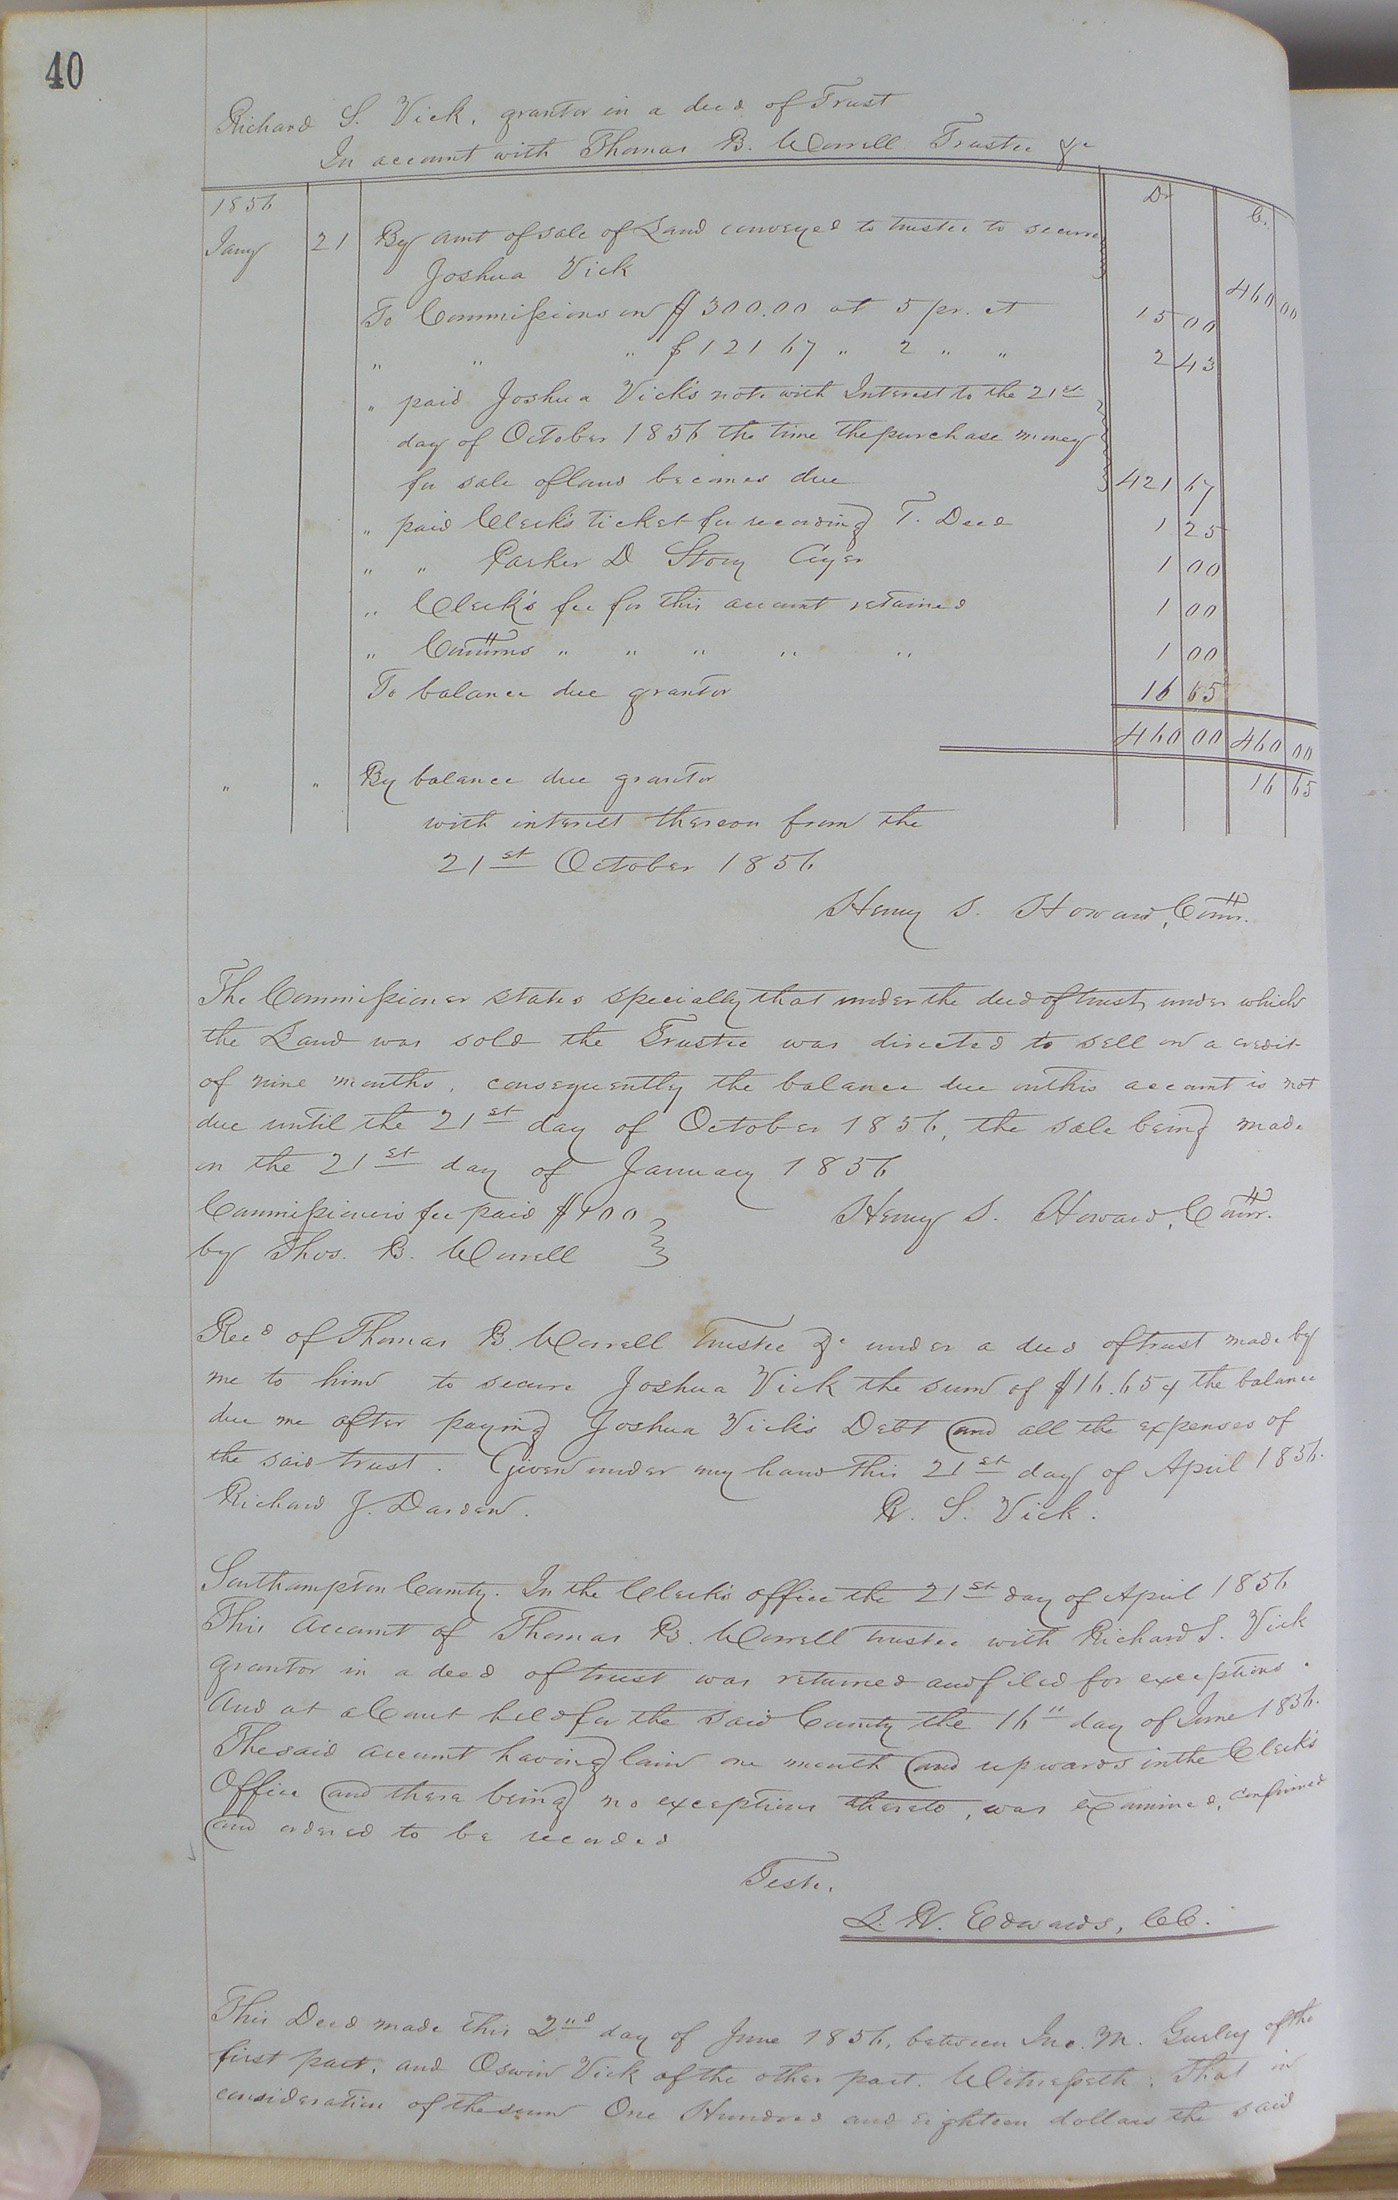 40
Richard S. Vick, grantor in a deed of Trust
In account with Thomas B. Worrell Trustee &c
1856 Dr Cr.
Jany 21 By amt of sale of Land conveyed to trustee to secure
Joshua Vick 460 00
To Commissions on $300.00 at 5 pr. ct 15 00
" " " $121 67 " 2 " " 2 43
" paid Joshua Vick's note with Interest to the 21st
day of October 1856 the time the purchase money
for sale of land becomes due 421 67
" paid Clerk's ticket for recording T. Deed 1 25
" " Parker D Story Cryer 1 00
" Clerk's fee for this account retained 1 00
" Commrs " " " " " 1 00
To balance due grantor 16 65
460 00 460 00
" " By balance due grantor 16 65
with interest thereon from the
21st October 1856
Henry S. Howard, Commr.
The Commissioner states specially that under the deed of trust, under which
the Land was sold the Trustee was directed to sell on a credit
of nine months, consequently the balance due on this account is not
due until the 21st day of October 1856, the sale being made
on the 21st day of January 1856
Commissioners fee paid $1 00 Henry S. Howard, Commr.
by Thos. B. Worrell
Recd of Thomas B. Worrell trustee &c under a deed of trust made by
me to him to secure Joshua Vick the sum of $16.65 the balance
due me after paying Joshua Vick's Debt and all the expenses of
the said trust. Given under my hand this 21st day of April 1856.
Richard J. Darden. R. S. Vick.
Southampton County. In the Clerk's office the 21st day of April 1856
This account of Thomas B. Worrell trustee with Richard S. Vick
grantor in a deed of trust was returned and filed for exceptions.
And at a Court held for the said County the 16" day of June 1856.
The said account having lain one month and upwards in the Clerk's
Office and there being no exceptions thereto, was examined, confirmed
and ordered to be recorded
Teste.
L. R. Edwards, CC.
This Deed made this 2nd day of June 1856, between Jno. M. Gurley of the
first part, and Oswin Vick of the other part. Witnesseth, That in
consideration of the sum One Hundred and eighteen dollars the said